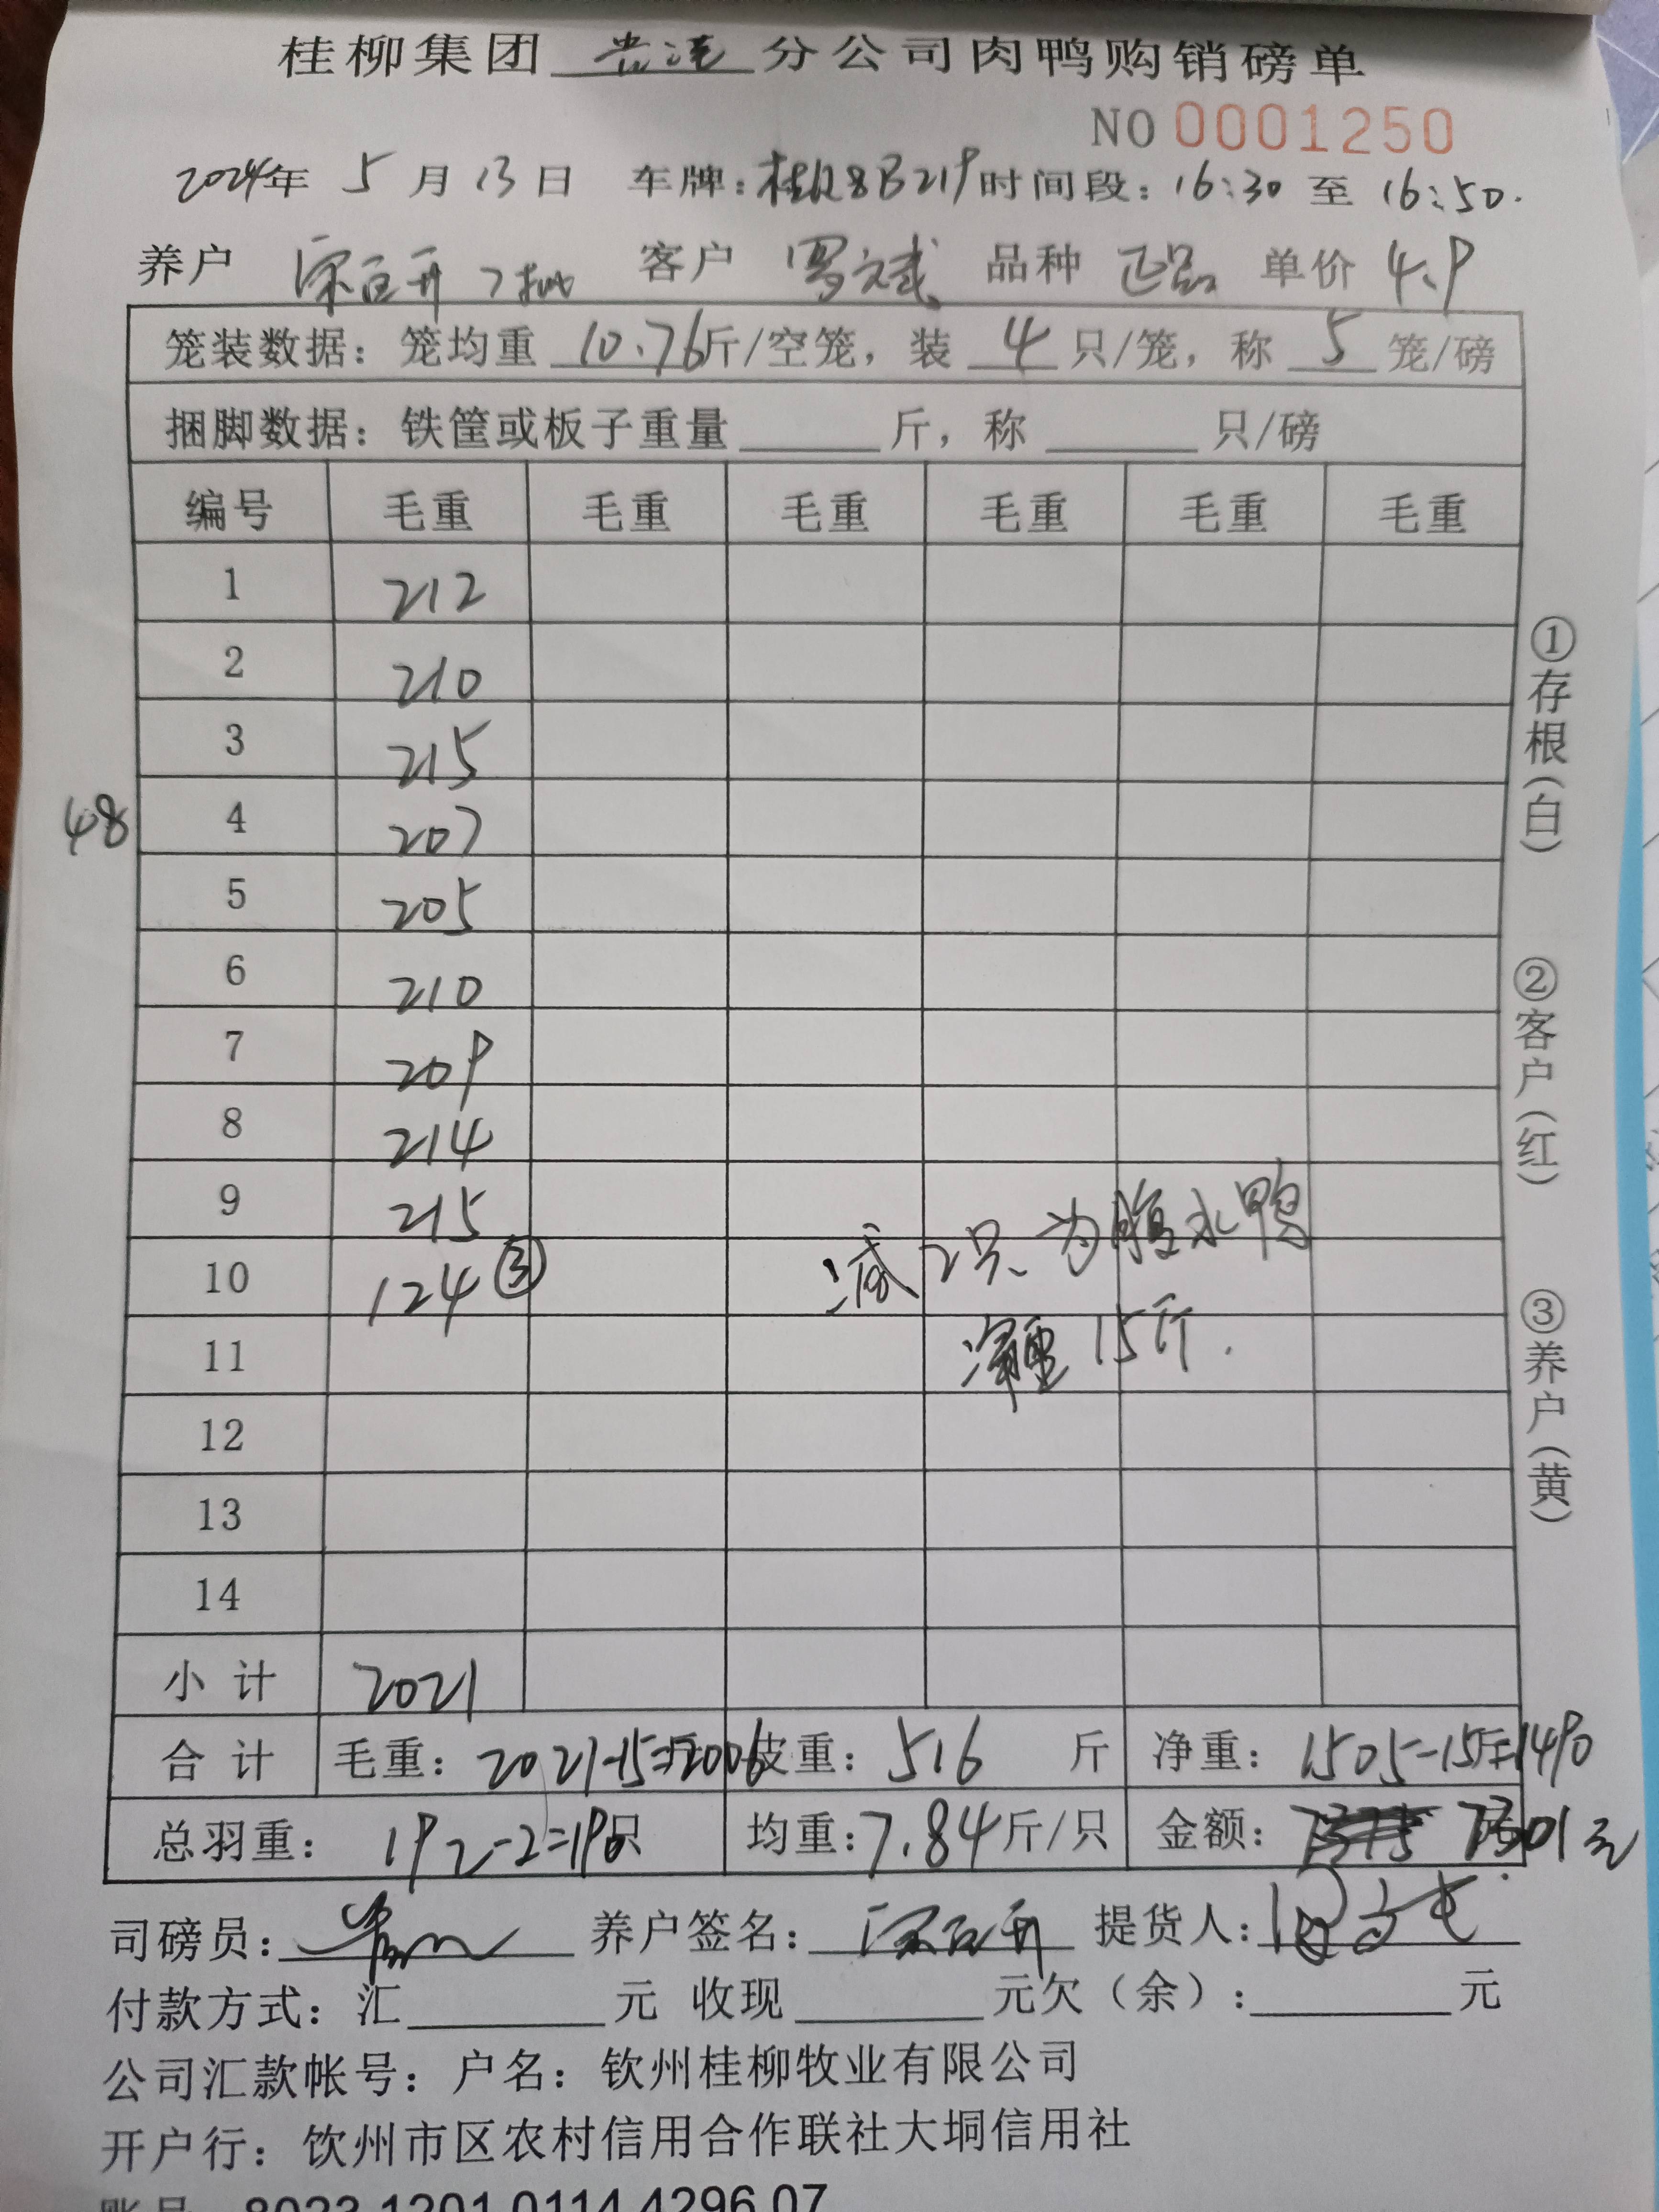 桂柳集团 分公司肉鸭购销磅单
NO 0001250
2024年 5 月 13 日 车牌：桂 8B219 时间段：16:30 至 16:50.
养户 宋百开 2批 客户 罗文斌 品种 正品 单价 4.9
笼装数据：笼均重 10.76 斤/空笼，装 4 只/笼，称 5 笼/磅
捆脚数据：铁筐或板子重量 斤，称 只/磅
编号 毛重 毛重 毛重 毛重 毛重 毛重
1 212
2 210
3 215
48 4 207
5 205
6 210
7 209
8 214
9 215
减2只为腹水鸭
10 124 ③
净重15斤.
11
12
13
14
小 计 2021
合 计 毛重：2021-15斤=2006 皮重：516 斤 净重：1505-15斤=1490
总羽重：192-2=190只 均重：7.84 斤/只 金额：7301元
司磅员： 养户签名：宋百开 提货人：
付款方式：汇 元 收现 元欠（余）： 元
公司汇款帐号：户名：钦州桂柳牧业有限公司
开户行：钦州市区农村信用合作联社大垌信用社
账号 8023 1201 0114 4296 07
①存根（白）
②客户（红）
③养户（黄）